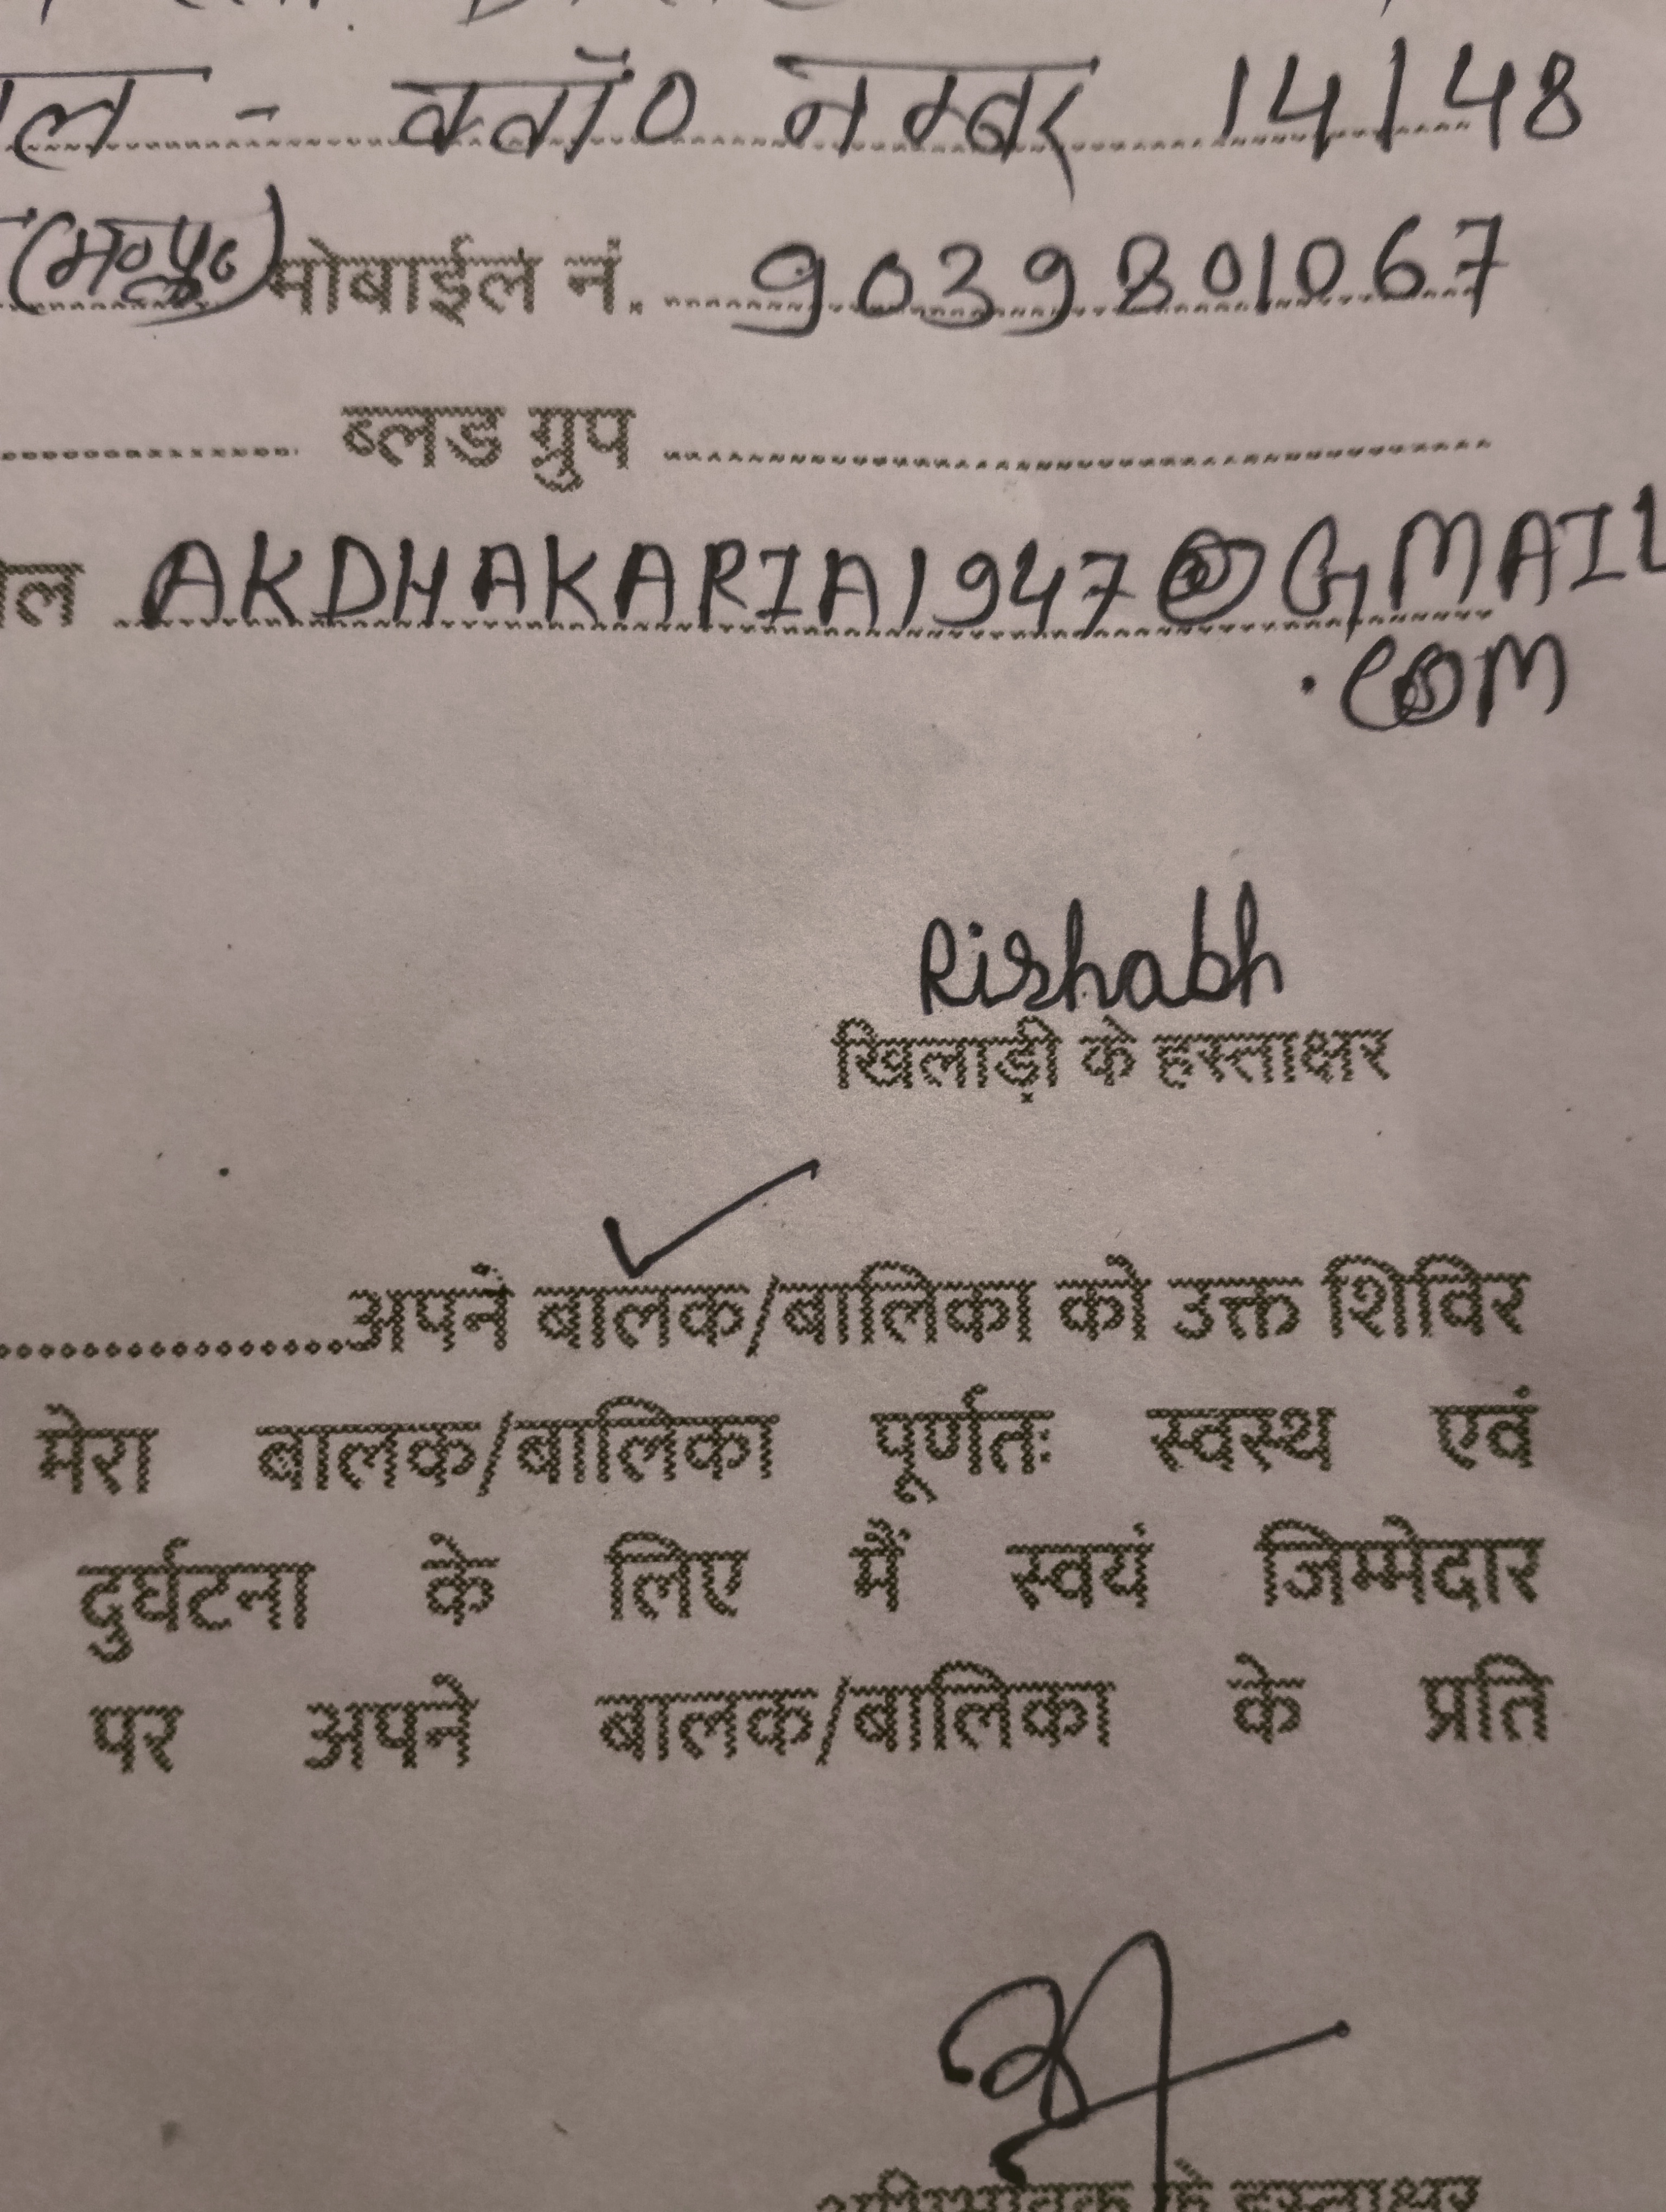 ल - क्वॉ० नम्बर 14/48
(म०प्र०) मोबाईल नं. 9039801067
ब्लड ग्रुप
ल AKDHAKARIA1947@GMAIL
.COM
Rishabh
खिलाड़ी के हस्ताक्षर
अपने बालक/बालिका को उक्त शिविर
मेरा बालक/बालिका पूर्णतः स्वस्थ एवं
दुर्घटना के लिए मैं स्वयं जिम्मेदार
पर अपने बालक/बालिका के प्रति
अभिभावक के हस्ताक्षर